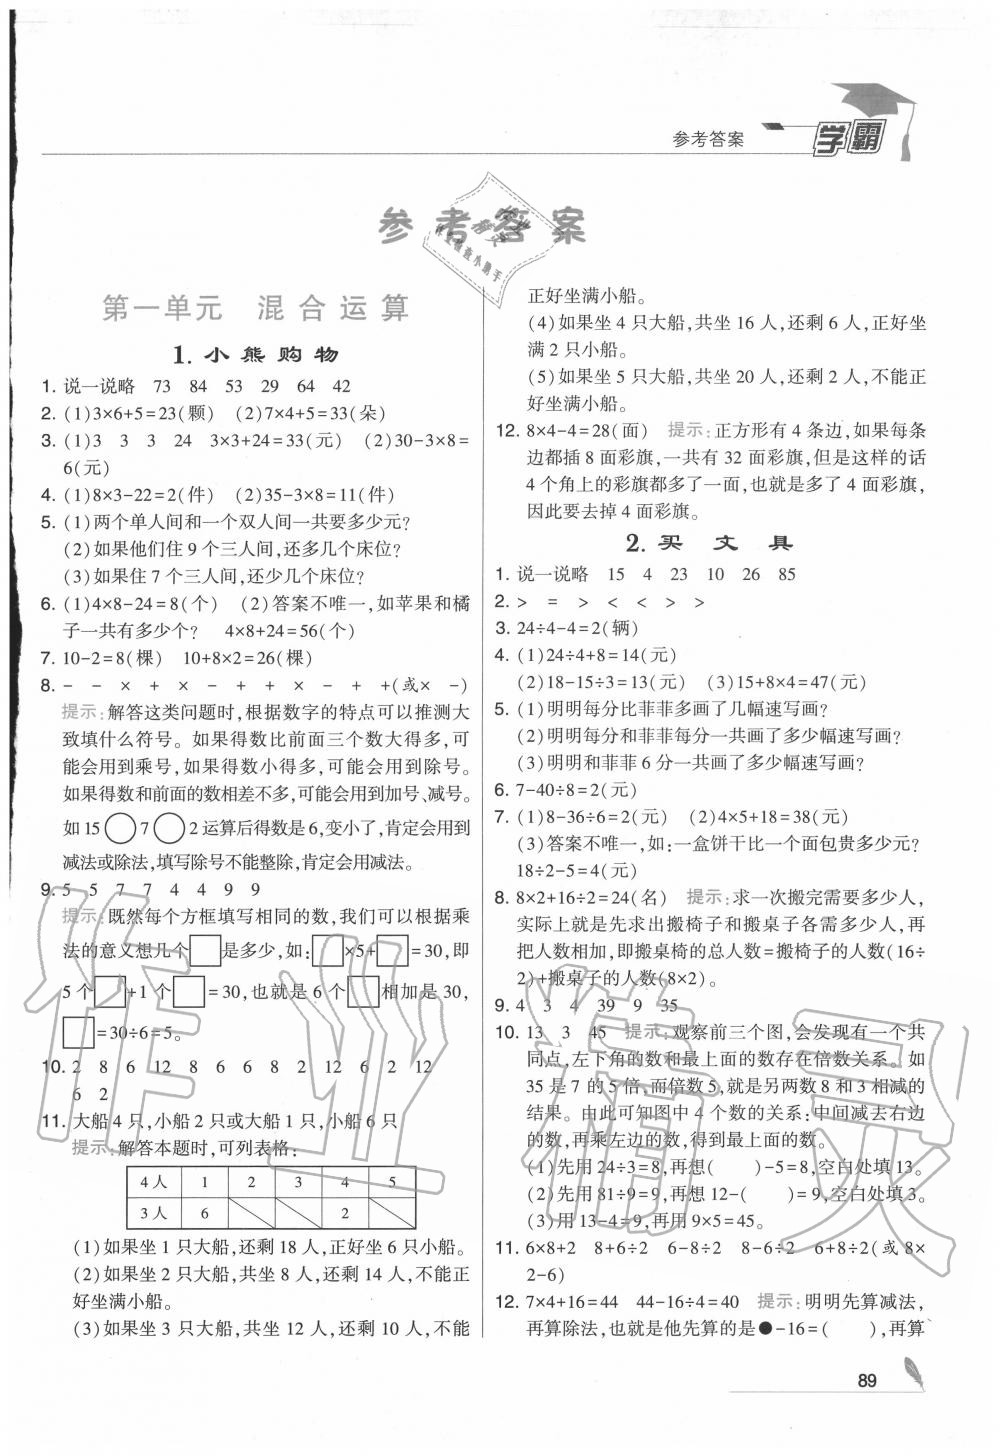 参考答案
学霸
参考答案
第一单元 混合运算
1. 小熊购物
1. 说一说略 73 84 53 29 64 42
2. (1)3×6+5=23(颗) (2)7×4+5=33(朵)
3. (1)3 3 3 24 3×3+24=33(元) (2)30-3×8=
6(元)
4. (1)8×3-22=2(件) (2)35-3×8=11(件)
5. (1)两个单人间和一个双人间一共要多少元?
(2)如果他们住 9 个三人间,还多几个床位?
(3)如果住 7 个三人间,还少几个床位?
6. (1)4×8-24=8(个) (2)答案不唯一,如苹果和橘
子一共有多少个? 4×8+24=56(个)
7. 10-2=8(棵) 10+8×2=26(棵)
8. - - × + × - + + × - + +(或× -)
提示:解答这类问题时,根据数字的特点可以推测大
致填什么符号。如果得数比前面三个数大得多,可
能会用到乘号,如果得数小得多,可能会用到除号。
如果得数和前面的数相差不多,可能会用到加号、减号。
如 15○7○2 运算后得数是 6,变小了,肯定会用到
减法或除法,填写除号不能整除,肯定会用减法。
9. 5 5 7 7 4 4 9 9
提示:既然每个方框填写相同的数,我们可以根据乘
法的意义想几个□是多少,如:□×5+□=30,即
5 个□+1 个□=30,也就是 6 个□相加是 30,
□=30÷6=5。
10. 2 8 6 12 8 6 6 8 2 12 6 2 12
6 2
11. 大船 4 只,小船 2 只或大船 1 只,小船 6 只
提示:解答本题时,可列表格:
4 人 1 2 3 4 5
3 人 6 2
(1)如果坐 1 只大船,还剩 18 人,正好坐 6 只小船。
(2)如果坐 2 只大船,共坐 8 人,还剩 14 人,不能正
好坐满小船。
(3)如果坐 3 只大船,共坐 12 人,还剩 10 人,不能
正好坐满小船。
(4)如果坐 4 只大船,共坐 16 人,还剩 6 人,正好坐
满 2 只小船。
(5)如果坐 5 只大船,共坐 20 人,还剩 2 人,不能正
好坐满小船。
12. 8×4-4=28(面) 提示:正方形有 4 条边,如果每条
边都插 8 面彩旗,一共有 32 面彩旗,但是这样的话
4 个角上的彩旗都多了一面,也就是多了 4 面彩旗,
因此要去掉 4 面彩旗。
2. 买文具
1. 说一说略 15 4 23 10 26 85
2. > = > < < > >
3. 24÷4-4=2(辆)
4. (1)24÷4+8=14(元)
(2)18-15÷3=13(元) (3)15+8×4=47(元)
5. (1)明明每分比菲菲多画了几幅速写画?
(2)明明每分和菲菲每分一共画了多少幅速写画?
(3)明明和菲菲 6 分一共画了多少幅速写画?
6. 7-40÷8=2(元)
7. (1)8-36÷6=2(元) (2)4×5+18=38(元)
(3)答案不唯一,如:一盒饼干比一个面包贵多少元?
18÷2-5=4(元)
8. 8×2+16÷2=24(名) 提示:求一次搬完需要多少人,
实际上就是先求出搬椅子和搬桌子各需多少人,再
把人数相加,即搬桌椅的总人数=搬椅子的人数(16÷
2)+搬桌子的人数(8×2)。
9. 4 3 4 39 9 35
10. 13 3 45 提示:观察前三个图,会发现有一个共
同点,左下角的数和最上面的数存在倍数关系。如
35 是 7 的 5 倍,而倍数 5,就是另两数 8 和 3 相减的
结果。由此可知图中 4 个数的关系:中间减去右边
的数,再乘左边的数,得到最上面的数。
(1)先用 24÷3=8,再想( )-5=8,空白处填 13。
(2)先用 81÷9=9,再想 12-( )=9,空白处填 3。
(3)用 13-4=9,再用 9×5=45。
11. 6×8+2 8+6÷2 6-8÷2 8-6÷2 6+8÷2(或 8×
2-6)
12. 7×4+16=44 44-16÷4=40 提示:明明先算减法,
再算除法,也就是他先算的是●-16=( ),再算
89
作业精灵